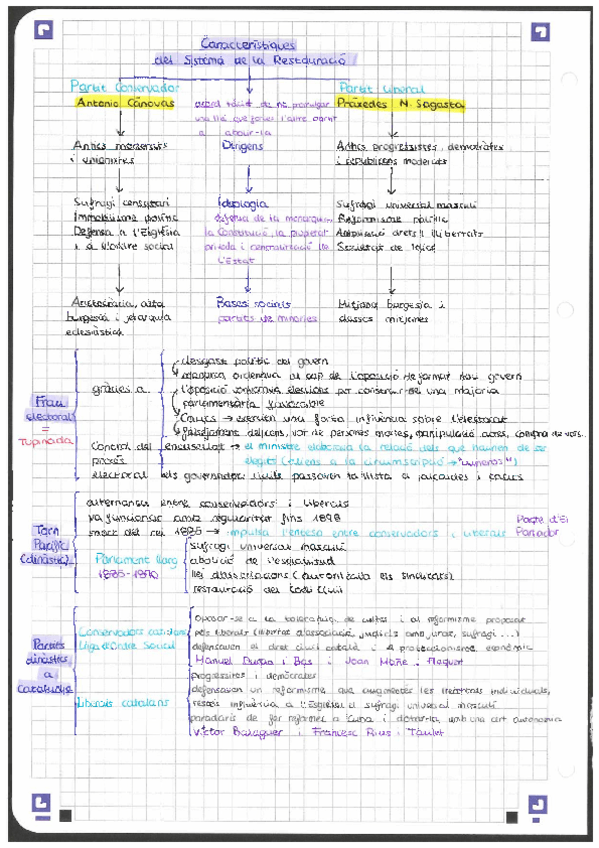 Característiques
del Sistema de la Restauració
Partit Conservador
Antonio Cánovas
acord tàcit de no promulgar
una llei que forcés l'altre partit
a abolir-la
Partit Liberal
Práxedes N. Sagasta
Antics moderats
i unionistes
Dirigens
Antics progressistes, demòcrates
i republicans moderats
Sufragi censatari
Immobilisme polític
Defensa a l'Església
i a l'ordre social
Ideologia
defensa de la monarquia,
la Constitució, la propietat
privada i centralització de
l'Estat
Sufragi universal masculí
Reformisme polític
drets i llibertats
Societat de
Aristocràcia, alta
burgesia i jerarquia
eclesiàstica
Bases socials
partits de minories
Mitjana burgesia i
classes mitjanes
Frau
electoral
=
Tupinada
gràcies a
desgast polític del govern
al cap de l'oposició de formar nou govern
l'oposició convocava eleccions per conseguir-ne una majoria
parlamentària favorable
Cacics → exercien una forta influència sobre l'electorat
vot de persones mortes, manipulació actes, compra de vots
Control del
procés
electoral
encasellat → el ministre elaborava la relació dels que haurien de ser
elegits (aliens a la circumscripció → "cuneros")
els governadors civils passaven la llista a alcaldes i cacics
Torn
Pacífic
(dinàstic)
alternança entre conservadors i liberals
va funcionar amb regularitat fins 1898
mort del rei 1885 → impulsa l'entesa entre conservadors i liberals
Pacte d'El
Pardo
Parlament llarg
1885-1890
sufragi universal masculí
abolició de l'esclavitud
llei d'associacions (autoritzava els sindicats)
restauració del Codi Civil
Partits
dinàstics
a
Catalunya
Conservadors catalans
Lliga d'Ordre Social
Oposar-se a la tolerància de cultes i al reformisme proposat
pels liberals (llibertat d'associació, judicis amb jurat, sufragi ...)
defensaven el dret civil català i el proteccionisme econòmic
Manuel Duran i Bas i Joan Mañé i Flaquer
Liberals catalans
progressistes i demòcrates
defensaven un reformisme que augmentés les llibertats individuals,
restés influència a l'Església el sufragi universal masculí
partidaris de fer reformes a Cuba i dotar-la amb una autonomia
Víctor Balaguer i Francesc Rius i Taulet